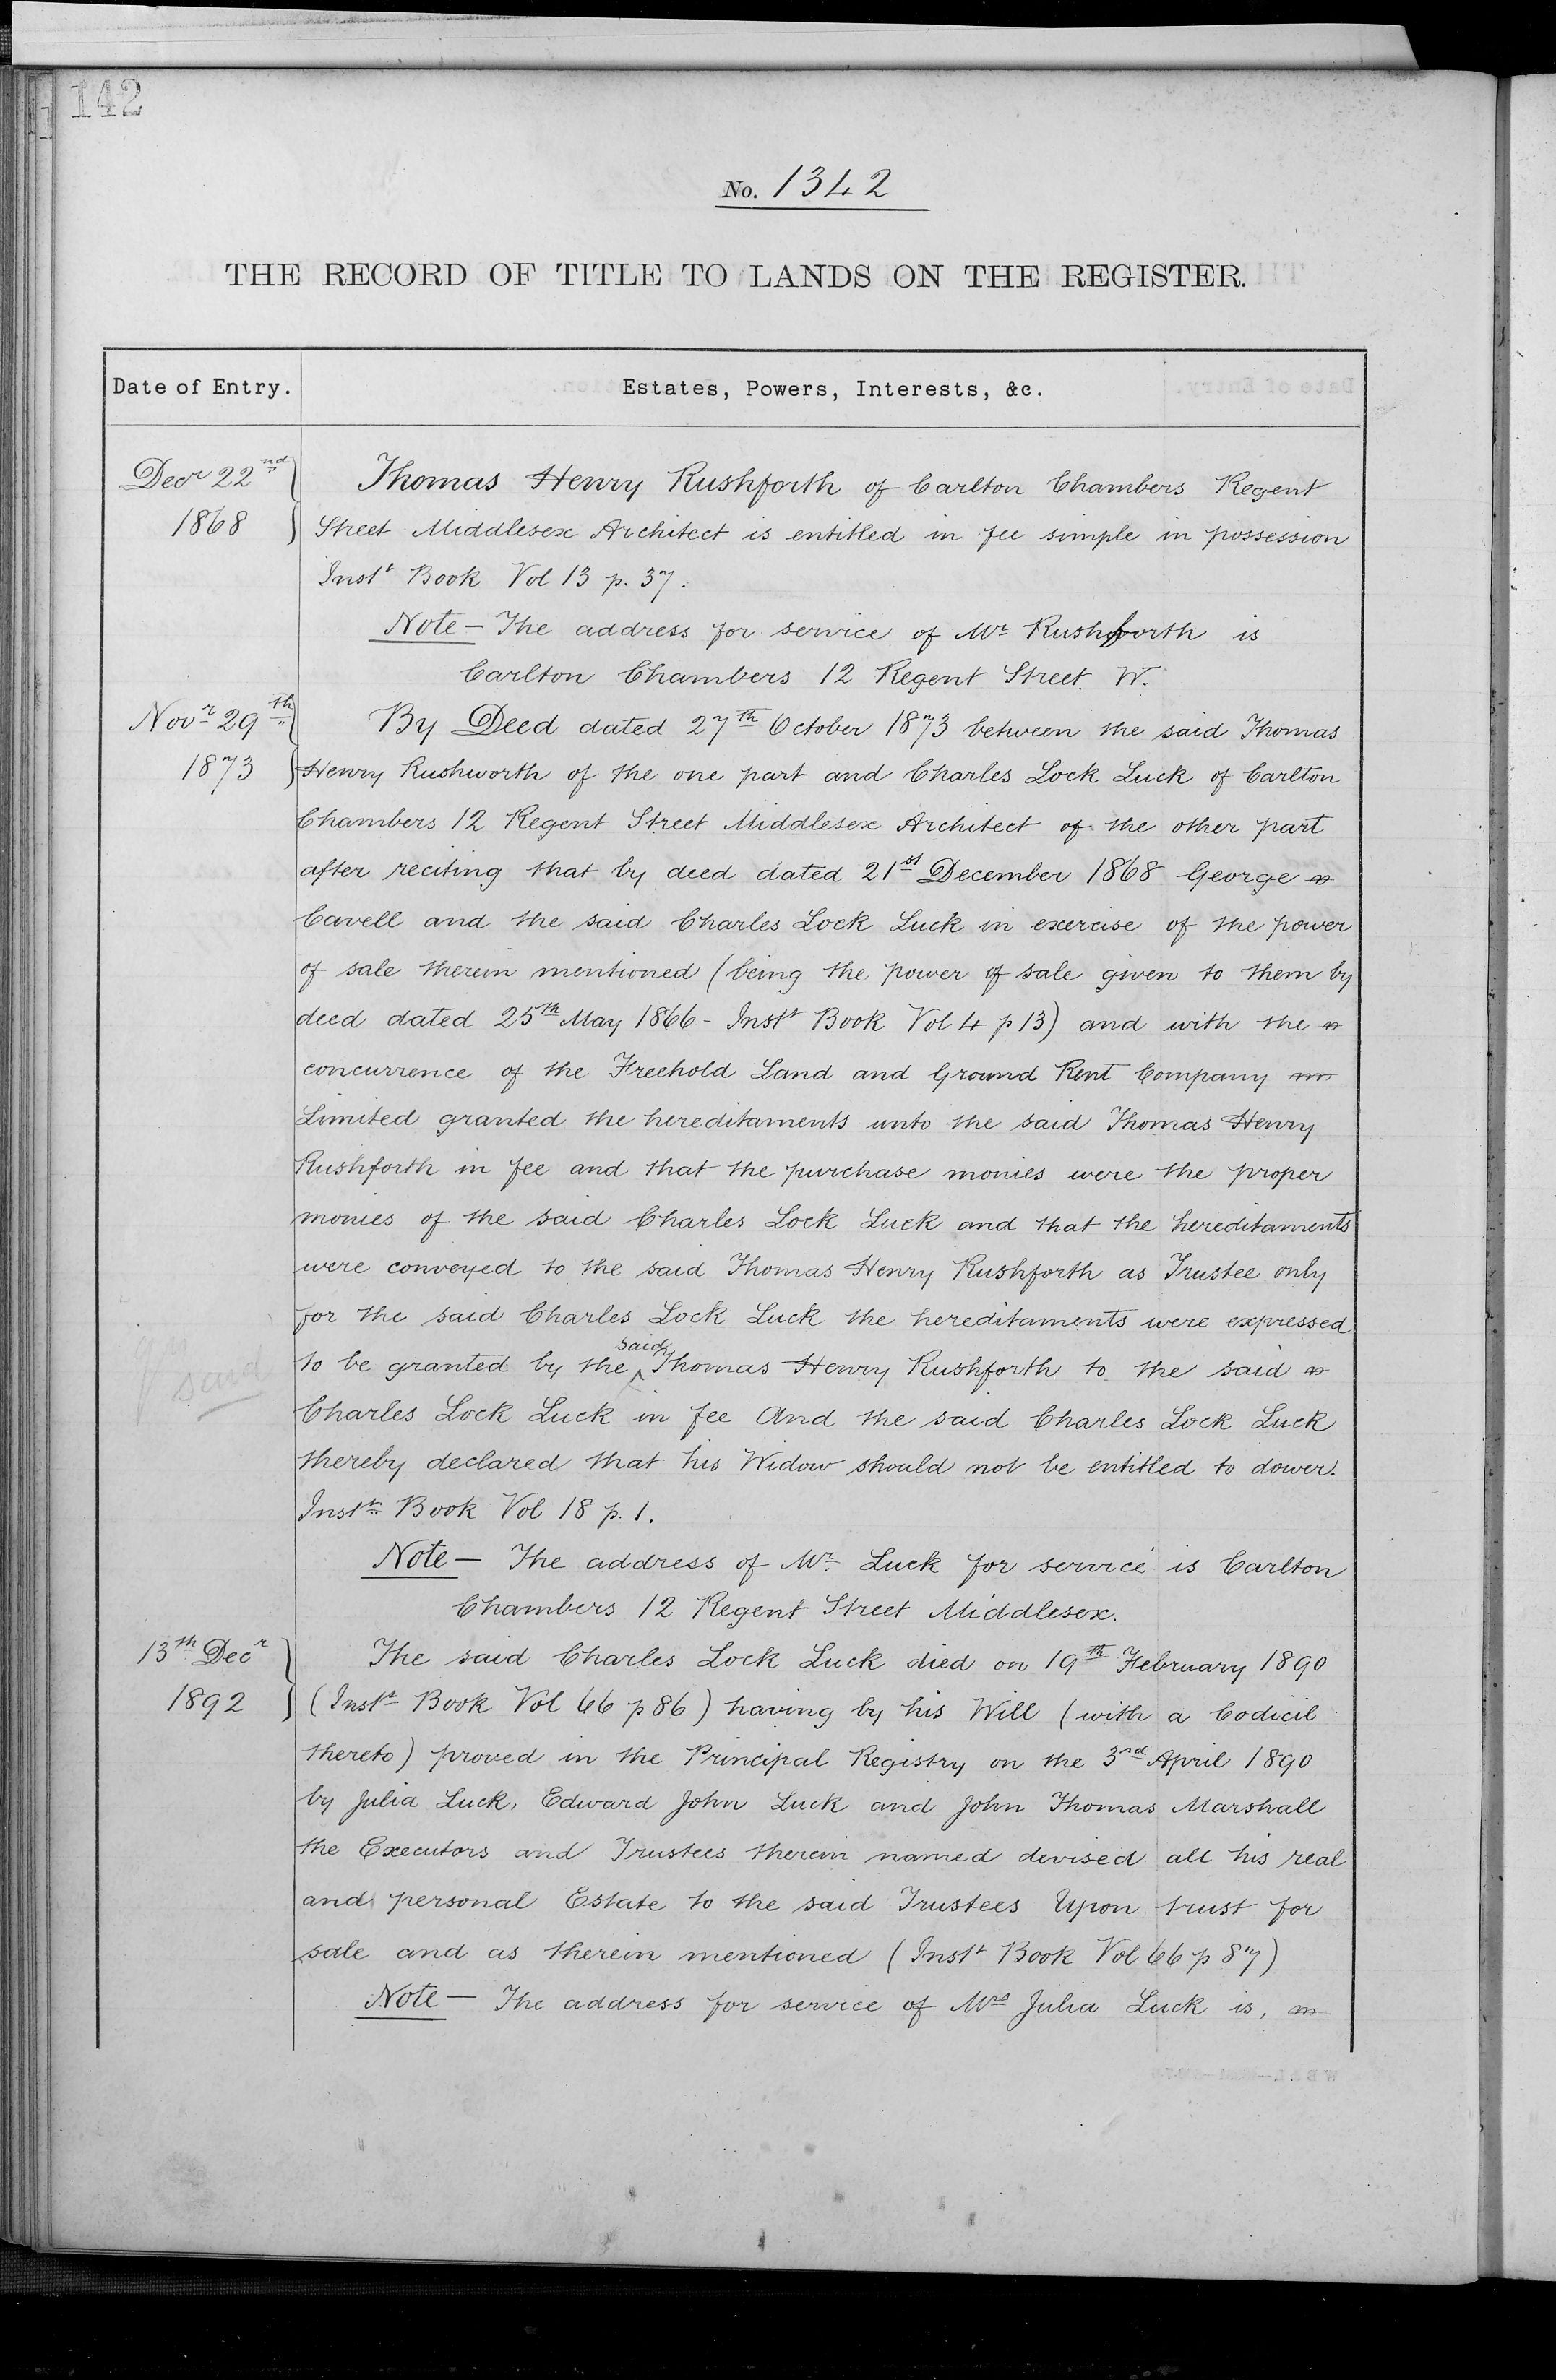 142
No. 1342
THE RECORD OF TITLE TO LANDS ON THE REGISTER.
Date of Entry. Estates, Powers, Interests, &c.
Decr 22nd Thomas Henry Rushforth of Carlton Chambers Regent
1868 Street Middlesex Architect is entitled in fee simple in possession
Instt Book Vol 13 p. 37.
Note - The address for service of Mr Rushforth is
Carlton Chambers 12 Regent Street. W.
Novr 29th By Deed dated 27th October 1873 between the said Thomas
1873 Henry Rushworth of the one part and Charles Lock Luck of Carlton
Chambers 12 Regent Street Middlesex Architect of the other part
after reciting that by deed dated 21st December 1868 George
Cavell and the said Charles Lock Luck in exercise of the power
of sale therein mentioned (being the power of sale given to them by
deed dated 25th May 1866 - Instt Book Vol 4 p 13) and with the
concurrence of the Freehold Land and Ground Rent Company
Limited granted the hereditaments unto the said Thomas Henry
Rushforth in fee and that the purchase monies were the proper
monies of the said Charles Lock Luck and that the hereditaments
were conveyed to the said Thomas Henry Rushforth as Trustee only
for the said Charles Lock Luck the hereditaments were expressed
said to be granted by the said Thomas Henry Rushforth to the said
Charles Lock Luck in fee And the said Charles Lock Luck
thereby declared that his Widow should not be entitled to dower.
Instt Book Vol 18 p. 1.
Note - The address of Mr Luck for service is Carlton
Chambers 12 Regent Street Middlesex.
13th Decr The said Charles Lock Luck died on 19th February 1890
1892 (Instt Book Vol 66 p 86) having by his Will (with a Codicil
thereto) proved in the Principal Registry on the 3rd April 1890
by Julia Luck, Edward John Luck and John Thomas Marshall
the Executors and Trustees therein named devised all his real
and personal Estate to the said Trustees Upon trust for
sale and as therein mentioned (Instt Book Vol 66 p 87)
Note - The address for service of Mrs Julia Luck is,